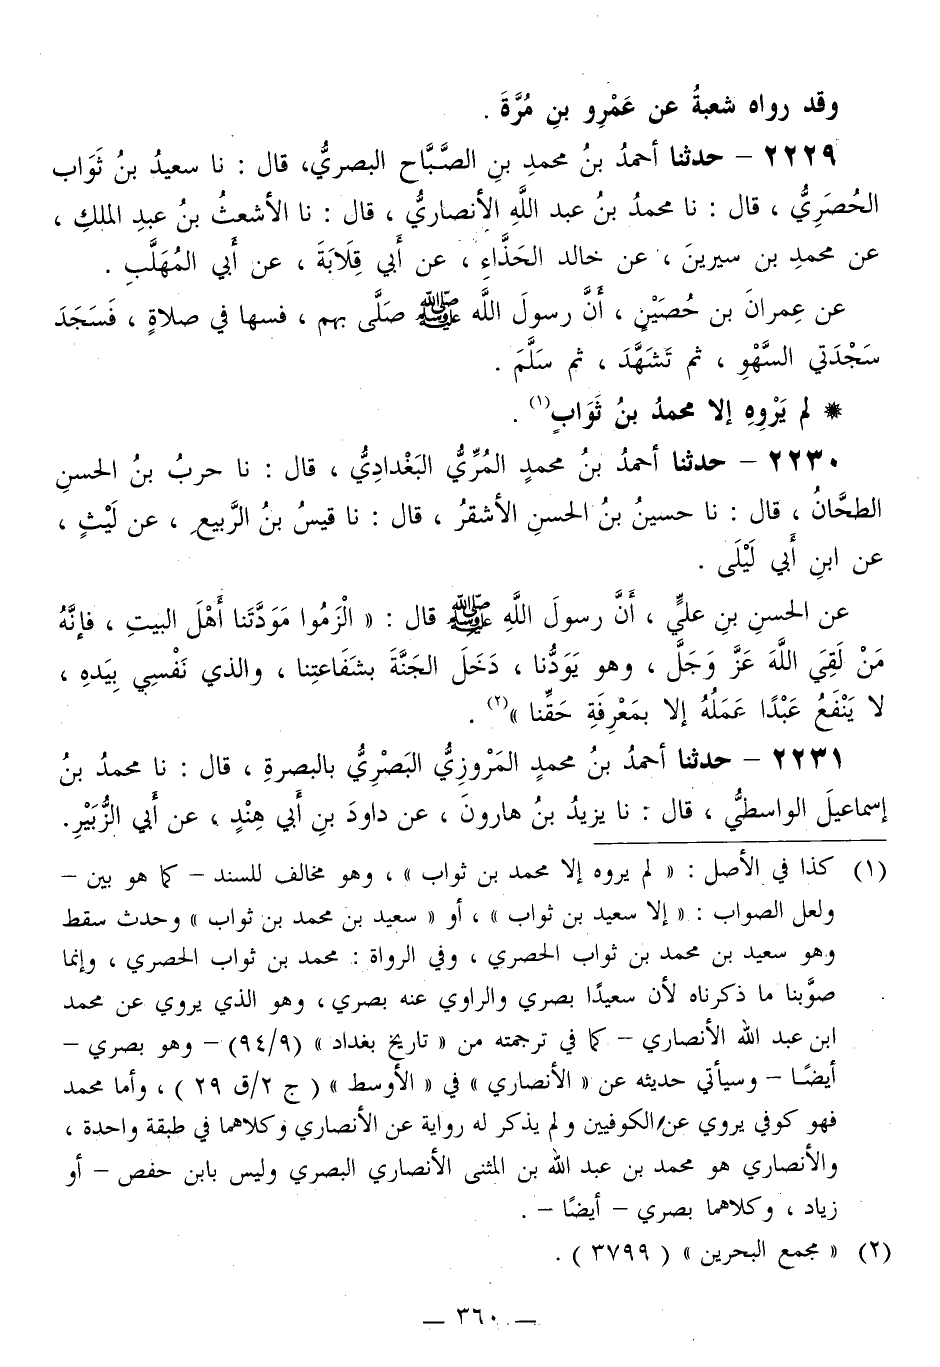 وقد رواه شعبةُ عن عَمْرِو بنِ مُرَّةَ .
٢٢٢٩ – حدثنا أحمدُ بنُ محمدِ بنِ الصَّبَّاح البصريُّ، قال : نا سعيدُ بنُ ثَوَاب
الحُصَرِيُّ ، قال : نا محمدُ بنُ عبد اللَّهِ الأنصاريُّ ، قال : نا الأشعثُ بنُ عبدِ الملكِ ،
عن محمدِ بن سيرينَ ، عن خالد الحَذَّاءِ ، عن أَبي قِلَابَةَ ، عن أَبي المُهَلَّبِ .
عن عِمرانَ بن حُصَيْنٍ ، أَنَّ رسولَ اللَّه ﷺ صَلَّى بهم ، فسها في صلاةٍ ، فَسَجَدَ
سَجْدَتي السَّهْوِ ، ثم تَشَهَّدَ ، ثم سَلَّمَ .
* لم يَرْوِهِ إلا محمدُ بنُ ثَوَابٍ(١) .
٢٢٣٠ – حدثنا أحمدُ بنُ محمدٍ المُرِّيُّ البَغْدادِيُّ ، قال : نا حربُ بنُ الحسنِ
الطحَّانُ ، قال : نا حسينُ بنُ الحسنِ الأشقرُ ، قال : نا قيسُ بنُ الرَّبيعِ ، عن لَيْثٍ ،
عن ابنِ أَبي لَيْلَى .
عن الحسنِ بنِ عليٍّ ، أَنَّ رسولَ اللَّهِ ﷺ قال : « الْزَمُوا مَوَدَّتَنا أَهْلَ البيتِ ، فإنَّهُ
مَنْ لَقِيَ اللَّهَ عَزَّ وَجَلَّ ، وهو يَوَدُّنا ، دَخَلَ الجَنَّةَ بشَفَاعتِنا ، والذي نَفْسِي بِيَدهِ ،
لا يَنْفَعُ عَبْدًا عَمَلُهُ إلا بمَعْرِفَةِ حَقِّنا »(٢) .
٢٢٣١ – حدثنا أحمدُ بنُ محمدٍ المَرْوزِيُّ البَصْرِيُّ بالبصرةِ ، قال : نا محمدُ بنُ
إسماعيلَ الواسطيُّ ، قال : نا يزيدُ بنُ هارونَ ، عن داودَ بنِ أَبي هِنْدٍ ، عن أَبي الزُّبَيْرِ.
(١) كذا في الأصل : « لم يروه إلا محمد بن ثواب » ، وهو مخالف للسند – كما هو بين –
ولعل الصواب : « إلا سعيد بن ثواب » ، أو « سعيد بن محمد بن ثواب » وحدث سقط
وهو سعيد بن محمد بن ثواب الحصري ، وفي الرواة : محمد بن ثواب الحصري ، وإنما
صوَّبنا ما ذكرناه لأن سعيدًا بصري والراوي عنه بصري ، وهو الذي يروي عن محمد
ابن عبد الله الأنصاري – كما في ترجمته من « تاريخ بغداد » (٩٤/٩) – وهو بصري –
أيضًا – وسيأتي حديثه عن « الأنصاري » في « الأوسط » ( ج ٢/ق ٢٩ ) ، وأما محمد
فهو كوفي يروي عن الكوفيين ولم يذكر له رواية عن الأنصاري وكلاهما في طبقة واحدة ،
والأنصاري هو محمد بن عبد الله بن المثنى الأنصاري البصري وليس بابن حفص – أو
زياد ، وكلاهما بصري – أيضًا – .
(٢) « مجمع البحرين » ( ٣٧٩٩ ) .
— ٣٦٠ —